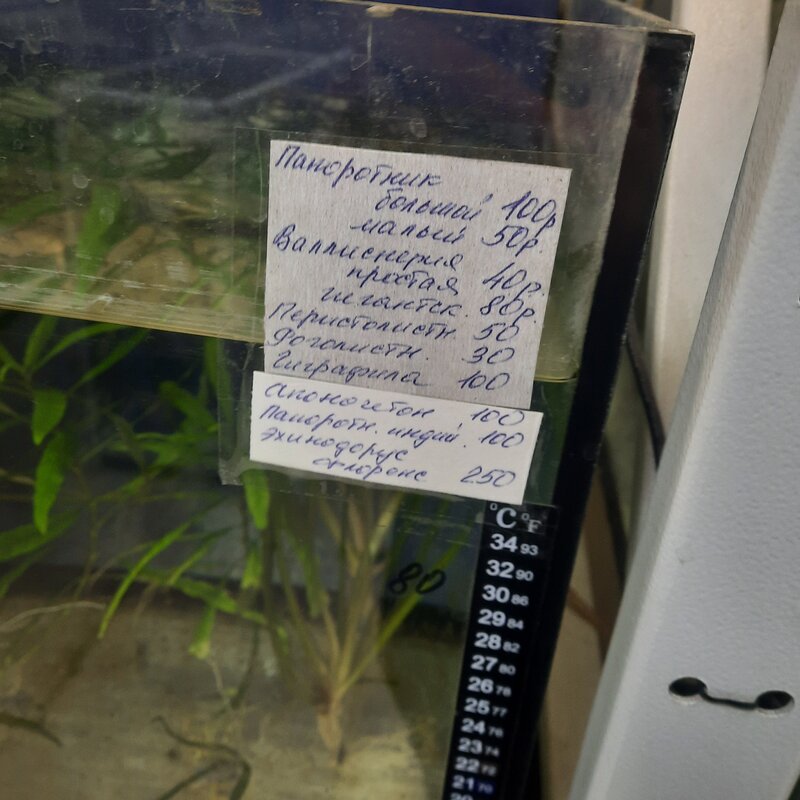 Папоротник
большой 100р
малый 50р.
Валлиснерия
простая 40р.
гигантск. 80р.
Перистолистн. 50
Роголистн. 30
Гиграфила 100
Апоногетон 100
Папоротн. индий. 100
Эхинодорус
250
80
°C °F
34 93
32 90
30 86
29 84
28 82
27 80
26 78
25 77
24 76
23 74
22 72
21 70
20